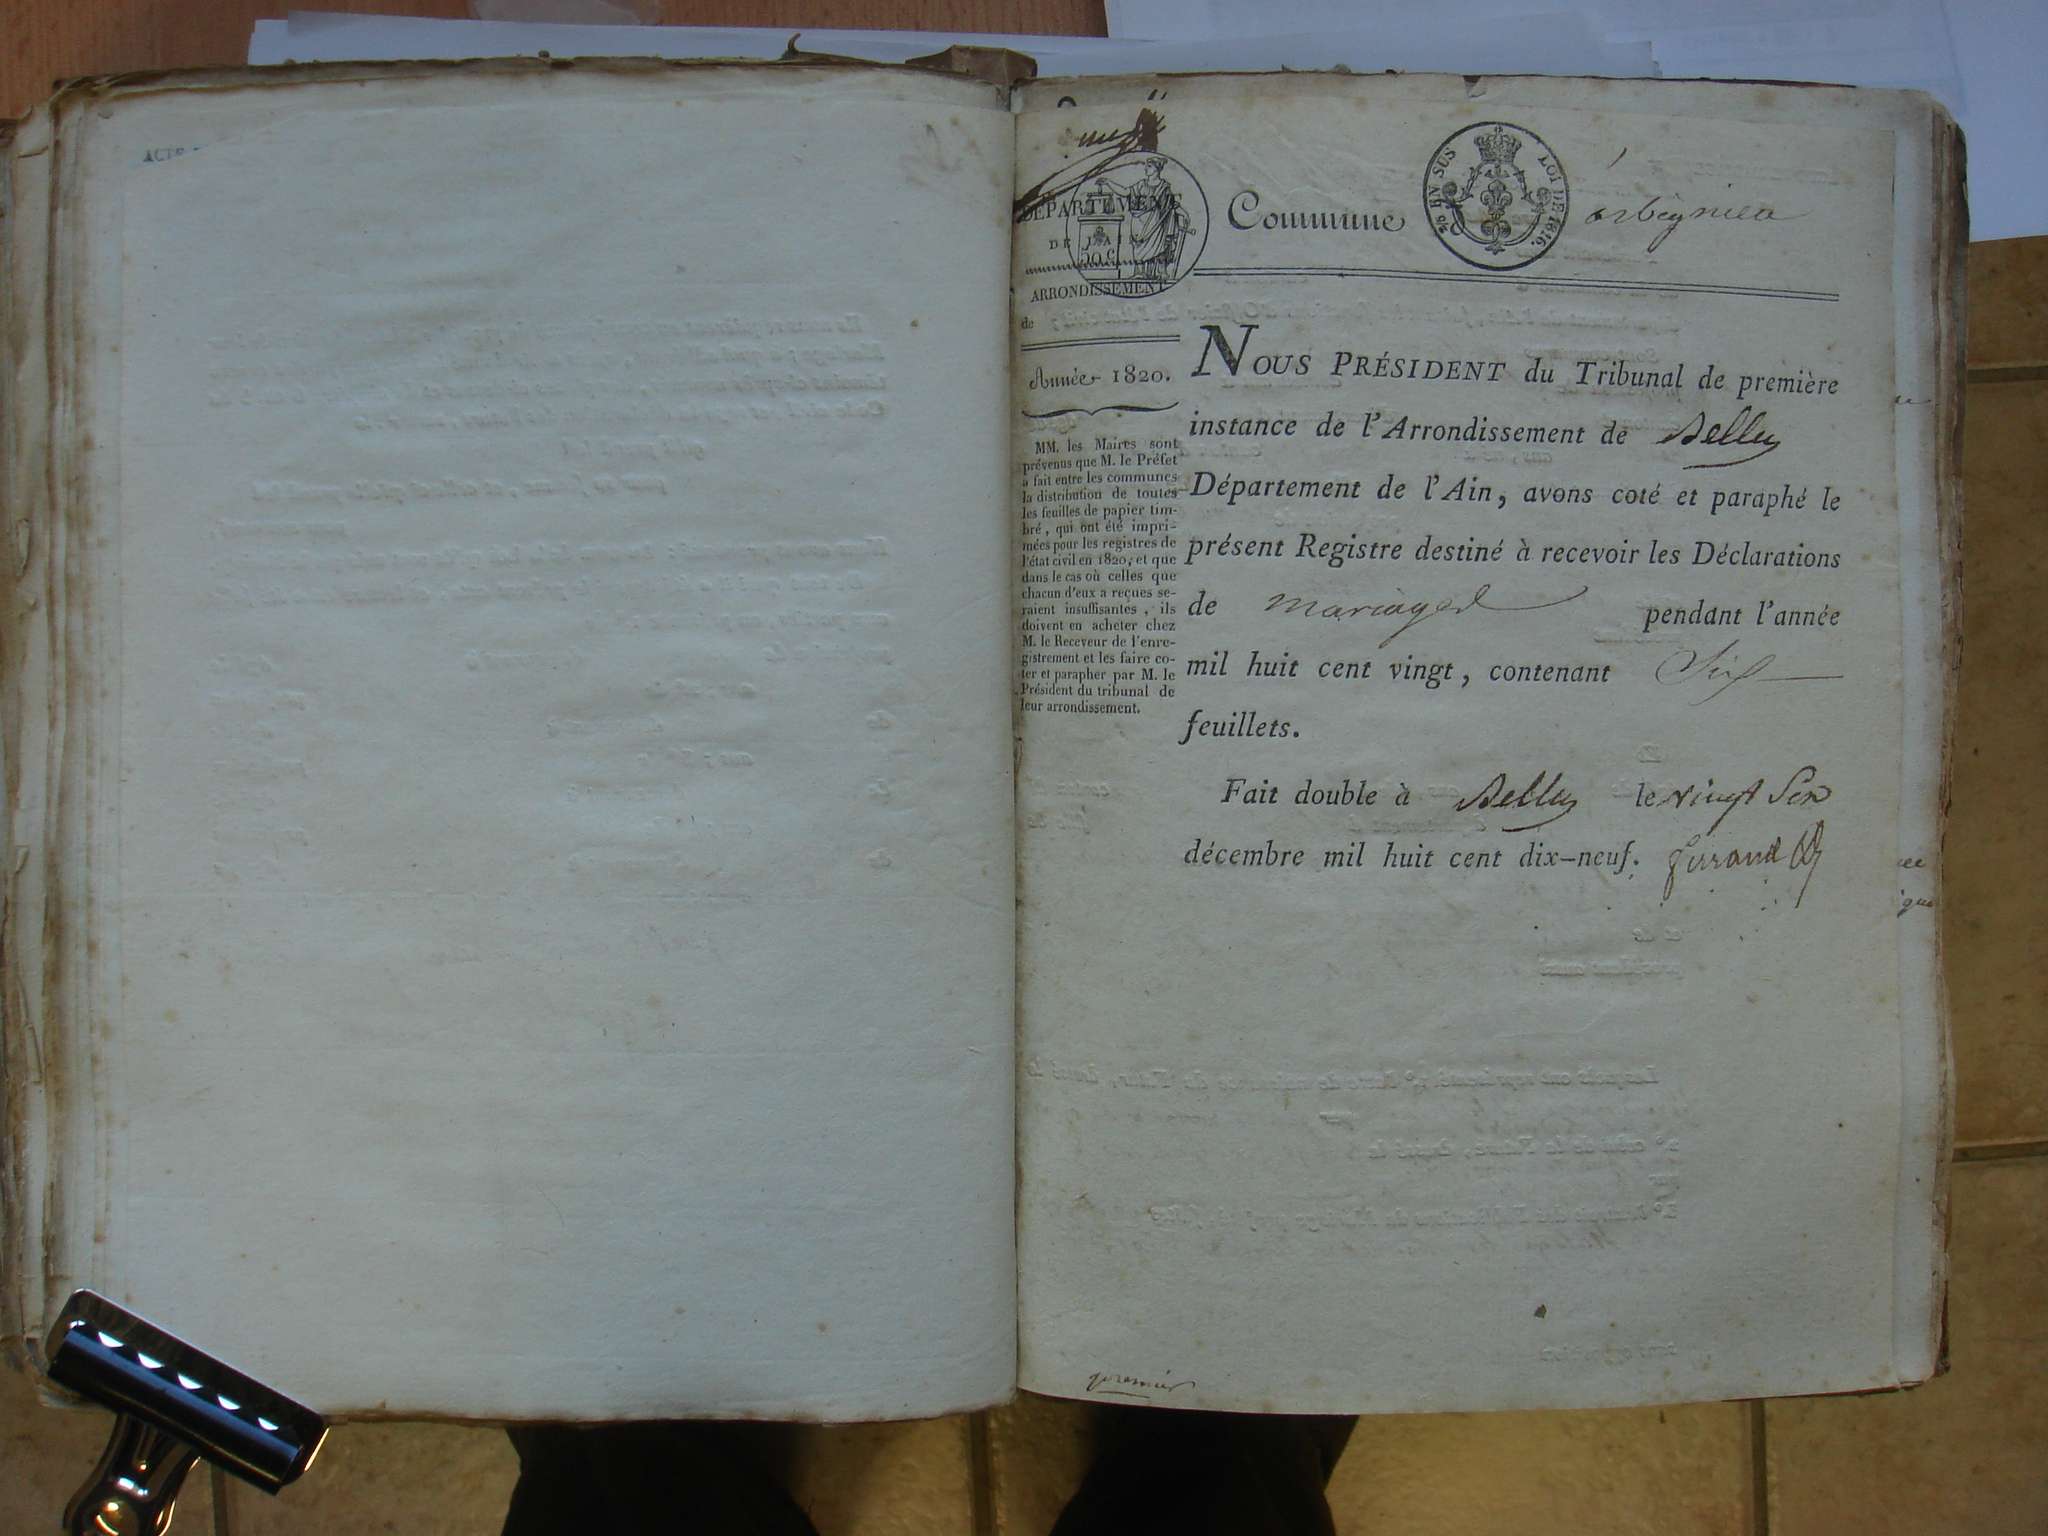 ACTE
DÉPARTEMENT
DE L'AIN.
20 c
ARRONDISSEMENT
de
Année 1820.
MM. les Maires sont
prévenus que M. le Préfet
a fait entre les communes
la distribution de toutes
les feuilles de papier tim-
bré, qui ont été impri-
mées pour les registres de
l'état civil en 1820, et que
dans le cas où celles que
chacun d'eux a reçues se-
raient insuffisantes, ils
doivent en acheter chez
M. le Receveur de l'enre-
gistrement et les faire co-
ter et parapher par M. le
Président du tribunal de
leur arrondissement.
Commune
EN SUS LOI DE 1816.
arbignieu
NOUS PRÉSIDENT du Tribunal de première
instance de l'Arrondissement de Belley
Département de l'Ain, avons coté et paraphé le
présent Registre destiné à recevoir les Déclarations
de mariages pendant l'année
mil huit cent vingt, contenant Six
feuillets.
Fait double à Belley le vingt
décembre mil huit cent dix-neuf.
premier